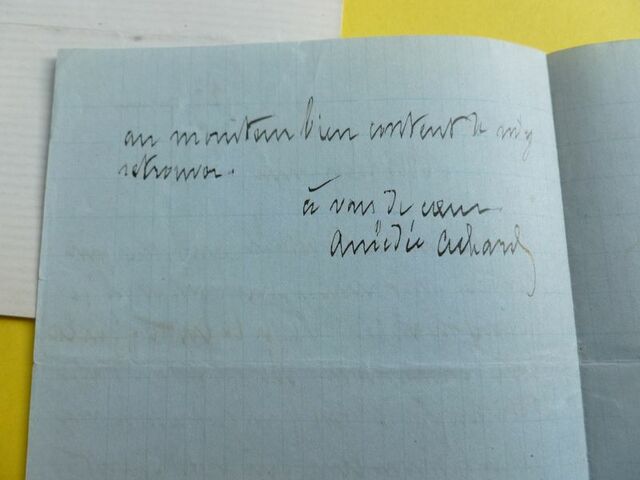 au moniteur bien content de m'y
retrouver.
à vous de cœur
Amédée Achard